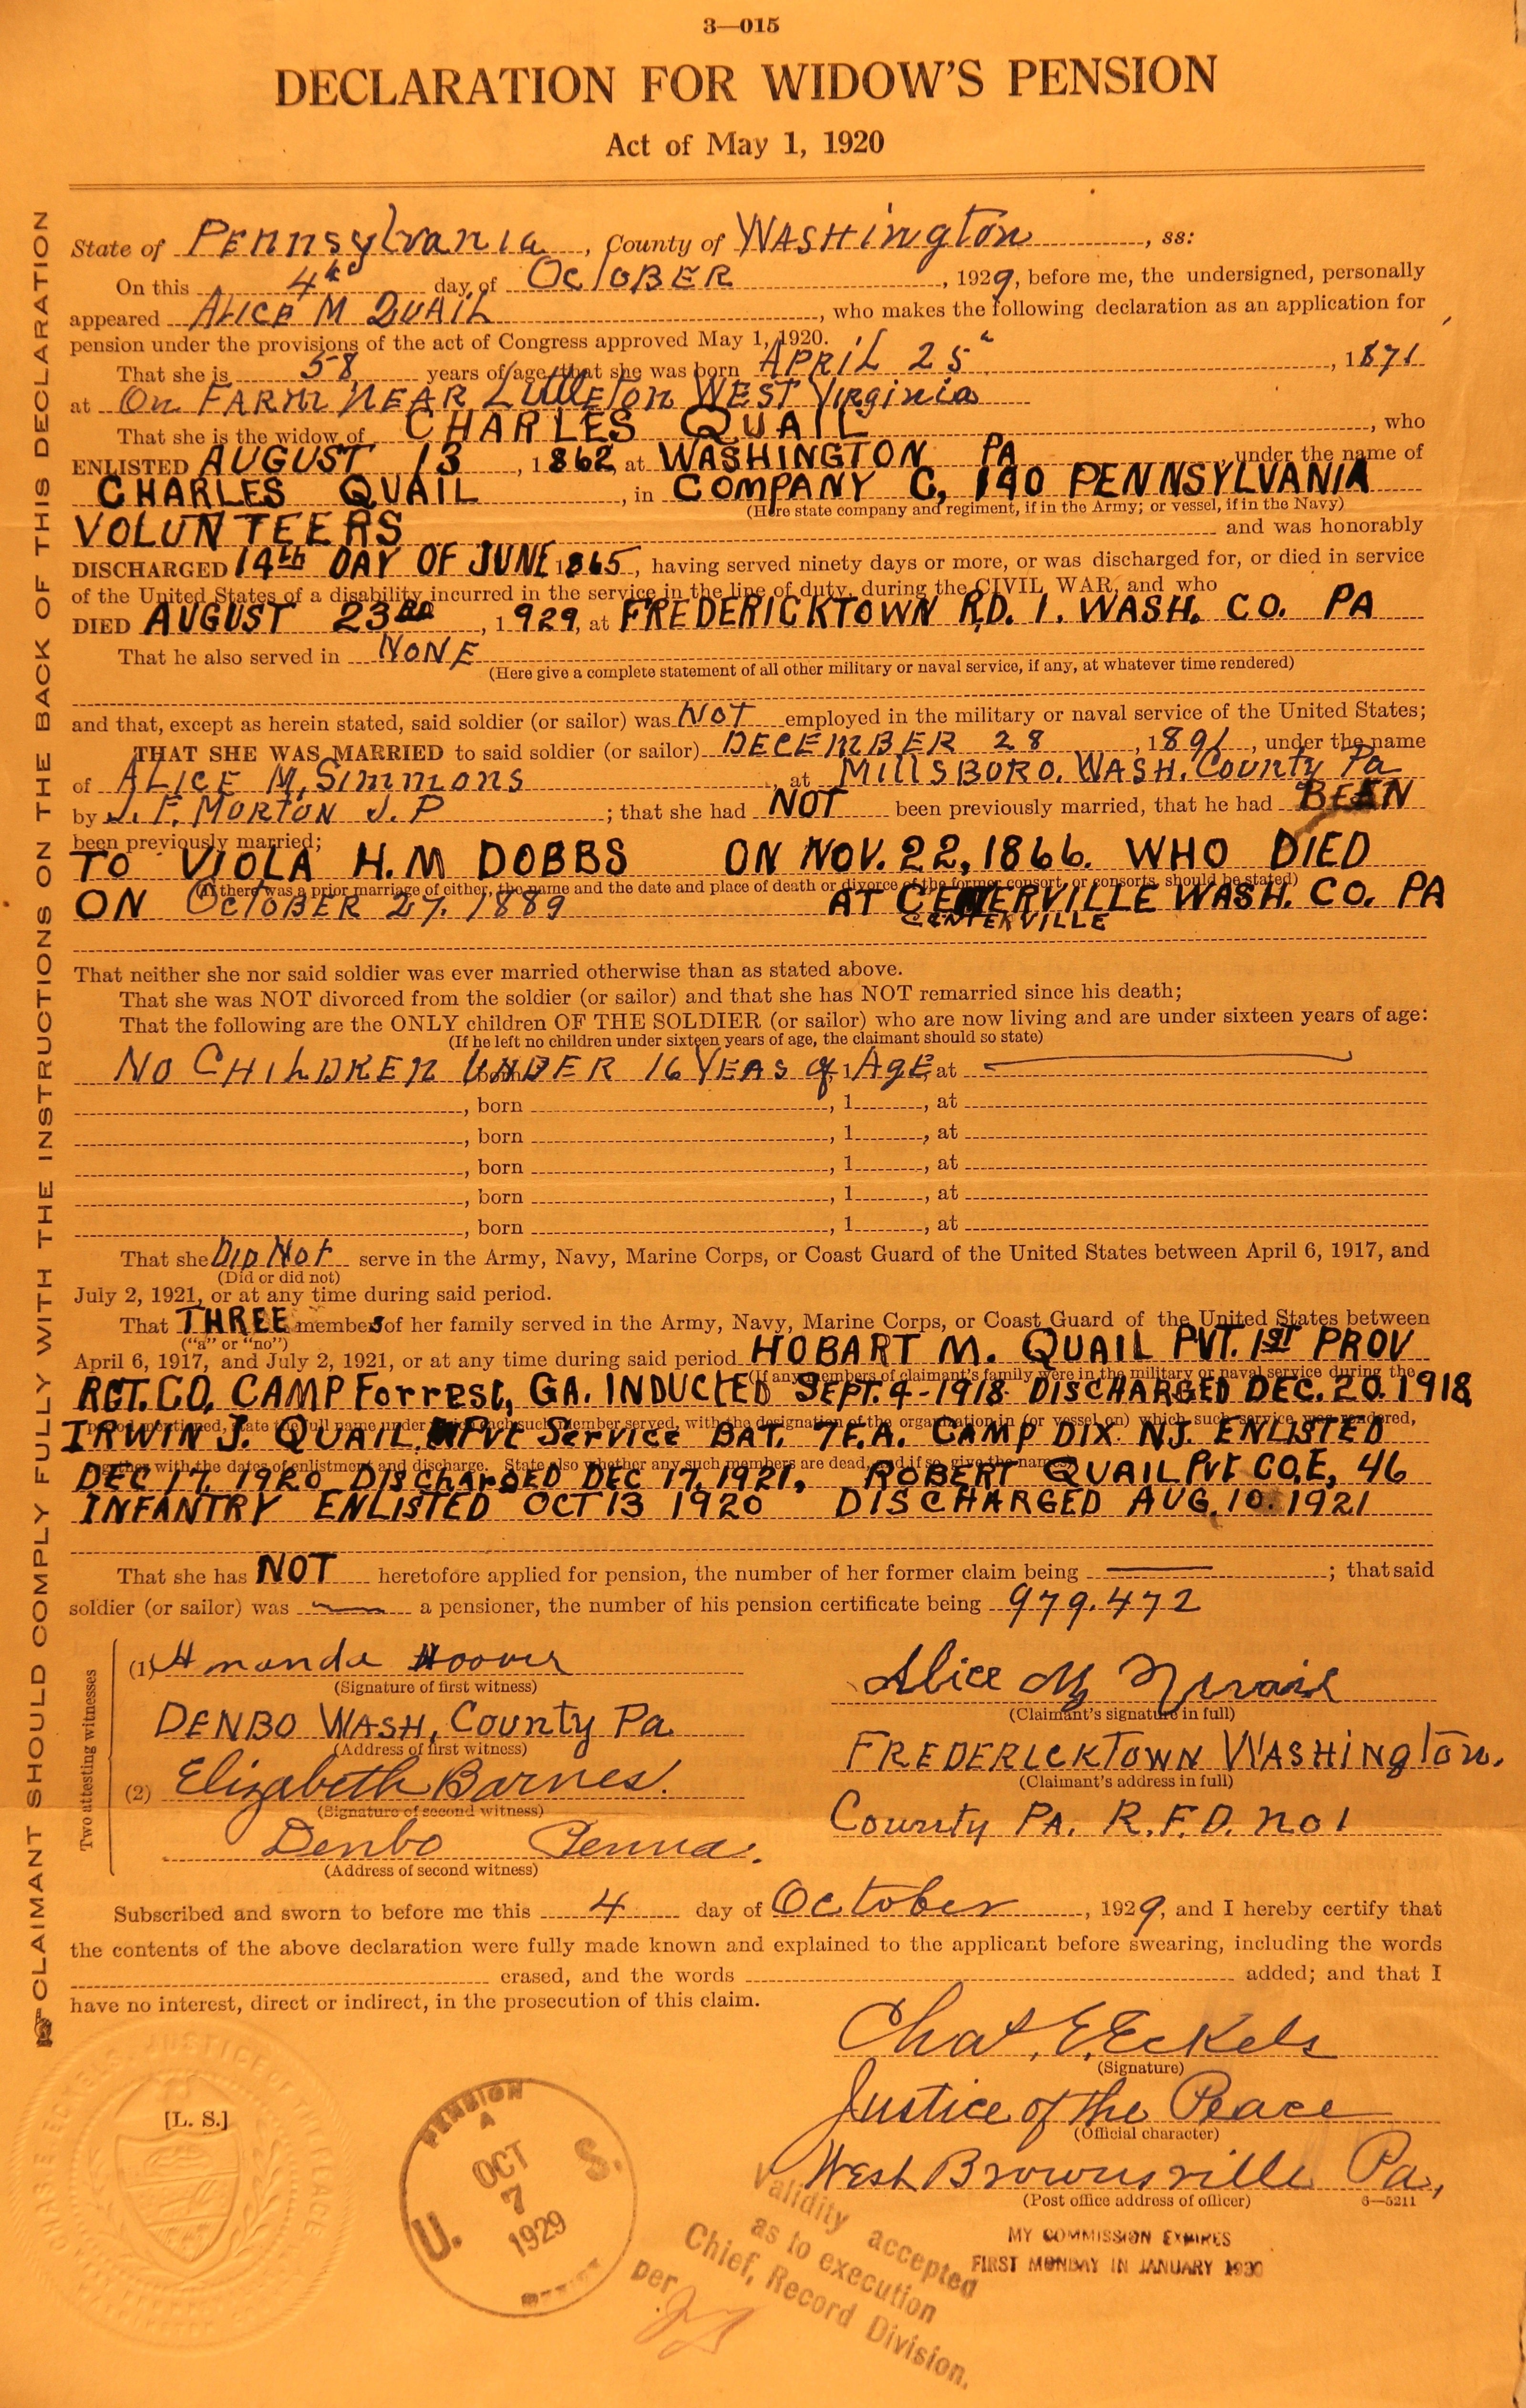 3—015
DECLARATION FOR WIDOW'S PENSION
Act of May 1, 1920
State of Pennsylvania, County of Washington, ss:
On this 4th day of October, 1929, before me, the undersigned, personally
appeared Alice M Quail, who makes the following declaration as an application for
pension under the provisions of the act of Congress approved May 1, 1920.
That she is 58 years of age, that she was born April 25", 1871
at On Farm near Littleton West Virginia
That she is the widow of CHARLES QUAIL, who
ENLISTED AUGUST 13, 1862, at WASHINGTON PA under the name of
CHARLES QUAIL, in COMPANY C, 140 PENNSYLVANIA
(Here state company and regiment, if in the Army; or vessel, if in the Navy)
VOLUNTEERS and was honorably
DISCHARGED 14th DAY OF JUNE 1865, having served ninety days or more, or was discharged for, or died in service
of the United States of a disability incurred in the service in the line of duty, during the CIVIL WAR, and who
DIED AUGUST 23RD, 1929, at FREDERICKTOWN R.D. 1. WASH. CO. PA
That he also served in NONE
(Here give a complete statement of all other military or naval service, if any, at whatever time rendered)
and that, except as herein stated, said soldier (or sailor) was NOT employed in the military or naval service of the United States;
THAT SHE WAS MARRIED to said soldier (or sailor) DECEMBER 28, 1891, under the name
of ALICE M, Simmons, at Millsboro. Wash. County Pa
by J. F. Morton J. P; that she had NOT been previously married, that he had BEEN
been previously married;
TO VIOLA H. M DOBBS ON NOV. 22, 1866. WHO DIED
(If there was a prior marriage of either, the name and the date and place of death or divorce of the former consort, or consorts, should be stated)
ON October 27. 1889 AT CENTERVILLE WASH. CO. PA
CENTERVILLE
That neither she nor said soldier was ever married otherwise than as stated above.
That she was NOT divorced from the soldier (or sailor) and that she has NOT remarried since his death;
That the following are the ONLY children OF THE SOLDIER (or sailor) who are now living and are under sixteen years of age:
(If he left no children under sixteen years of age, the claimant should so state)
No Children Under 16 Yeas of Age, born , 1 , at
, born , 1 , at
, born , 1 , at
, born , 1 , at
, born , 1 , at
, born , 1 , at
That she Did Not serve in the Army, Navy, Marine Corps, or Coast Guard of the United States between April 6, 1917, and
(Did or did not)
July 2, 1921, or at any time during said period.
That THREE members of her family served in the Army, Navy, Marine Corps, or Coast Guard of the United States between
("a" or "no")
April 6, 1917, and July 2, 1921, or at any time during said period HOBART M. QUAIL PVT. 1ST PROV
(If any members of claimant's family were in the military or naval service during the
RGT. CO. CAMP Forrest, GA. INDUCTED SEPT. 4-1918 DISCHARGED DEC. 20. 1918
period mentioned, state the full name under which each such member served, with the designation of the organization in (or vessel on) which such service was rendered,
IRWIN J. QUAIL. Pvt Service BAT. 7 F.A. CAMP DIX NJ. ENLISTED
together with the dates of enlistment and discharge. State also whether any such members are dead, and if so, give the names)
DEC 17, 1920 DISCHARGED DEC 17, 1921, ROBERT QUAIL Pvt CO, E, 46
INFANTRY ENLISTED OCT 13 1920 DISCHARGED AUG. 10. 1921
That she has NOT heretofore applied for pension, the number of her former claim being ; that said
soldier (or sailor) was a pensioner, the number of his pension certificate being 979.472
Two attesting witnesses
(1) Amanda Hoover
(Signature of first witness)
Denbo Wash, County Pa
(Address of first witness)
(2) Elizabeth Barnes.
(Signature of second witness)
Denbo Penna.
(Address of second witness)
Alice M Quail
(Claimant's signature in full)
Fredericktown Washington.
(Claimant's address in full)
County Pa. R.F.D. no 1
Subscribed and sworn to before me this 4 day of October, 1929, and I hereby certify that
the contents of the above declaration were fully made known and explained to the applicant before swearing, including the words
erased, and the words added; and that I
have no interest, direct or indirect, in the prosecution of this claim.
Chas. E. Eckels
(Signature)
Justice of the Peace
(Official character)
West Brownsville Pa,
(Post office address of officer)
6—5211
MY COMMISSION EXPIRES
FIRST MONDAY IN JANUARY 1930
[L. S.]
U. S. PENSION OFFICE
OCT
7
1929
Validity accepted
as to execution
Chief, Record Division.
per
CLAIMANT SHOULD COMPLY FULLY WITH THE INSTRUCTIONS ON THE BACK OF THIS DECLARATION